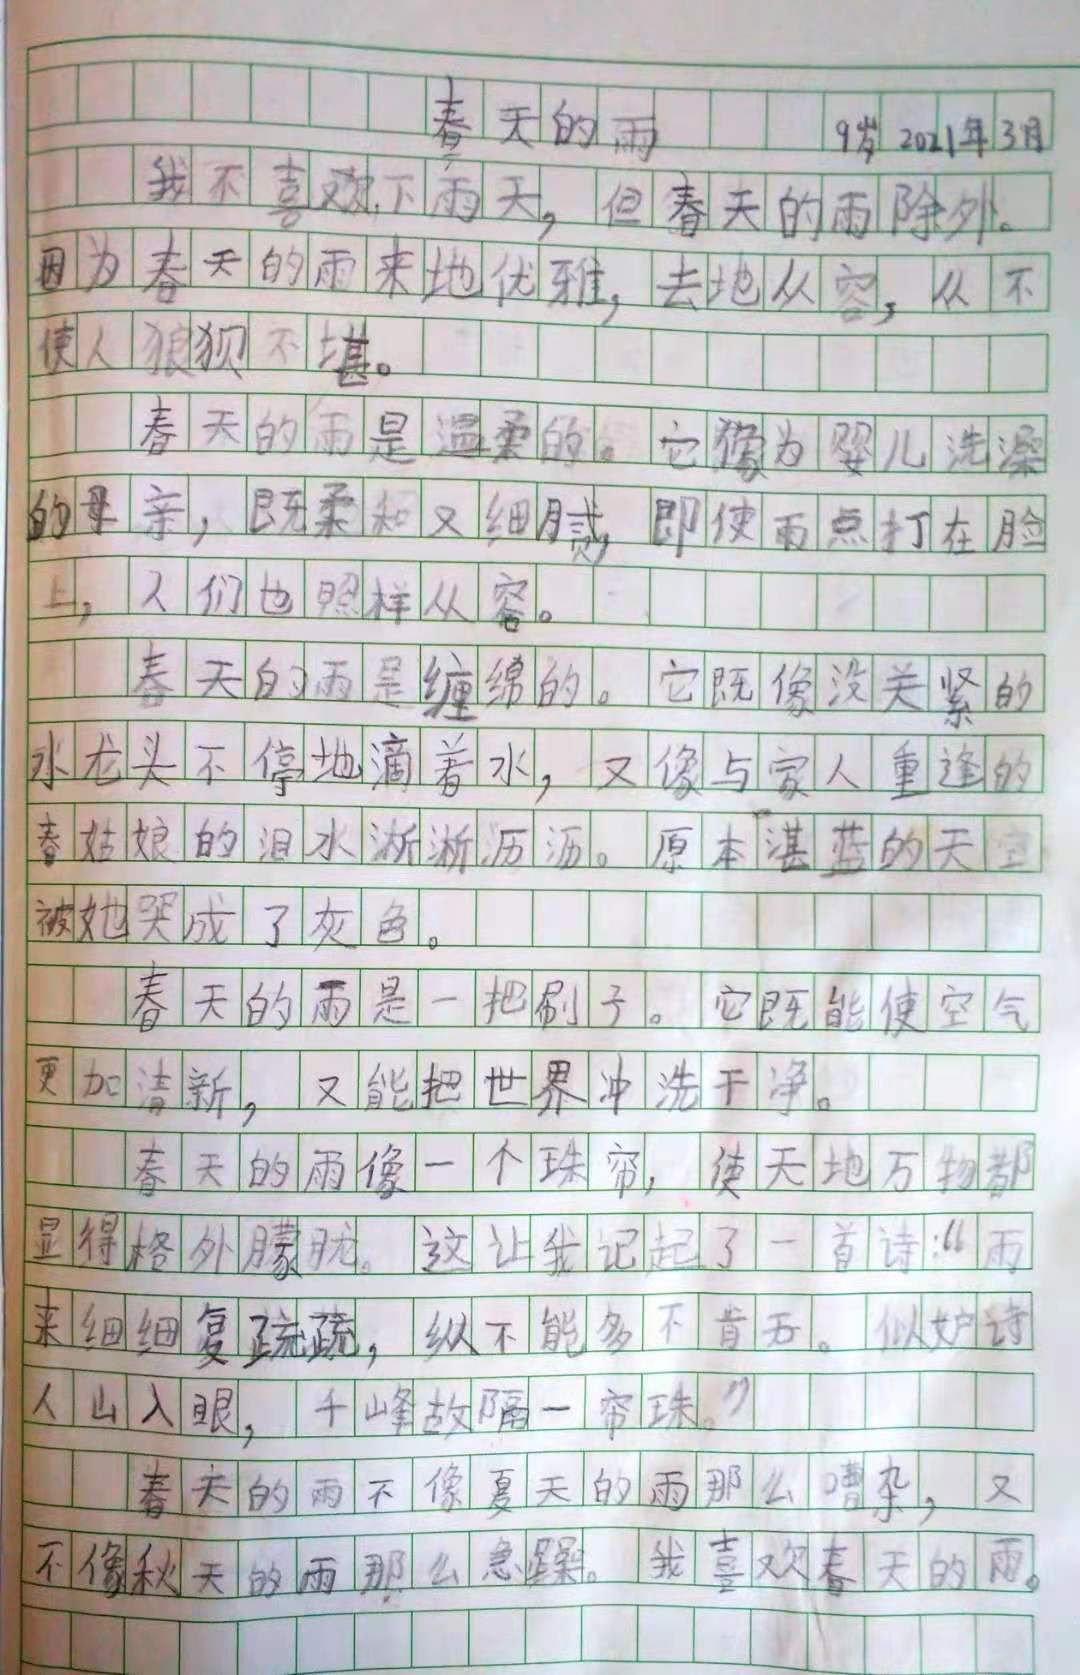 春天的雨 9岁 2021年3月
我不喜欢下雨天，但春天的雨除外。
因为春天的雨来地优雅，去地从容，从不
使人狼狈不堪。
春天的雨是温柔的。它像为婴儿洗澡
的母亲，既柔和又细腻，即使雨点打在脸
上，人们也照样从容。
春天的雨是缠绵的。它既像没关紧的
水龙头不停地滴着水，又像与家人重逢的
春姑娘的泪水淅淅沥沥。原本湛蓝的天空
被她哭成了灰色。
春天的雨是一把刷子。它既能使空气
更加清新，又能把世界冲洗干净。
春天的雨像一个珠帘，使天地万物都
显得格外朦胧。这让我记起了一首诗：“雨
来细细复疏疏，纵不能多不肯无。似妒诗
人山入眼，千峰故隔一帘珠。”
春天的雨不像夏天的雨那么嘈杂，又
不像秋天的雨那么急躁。我喜欢春天的雨。